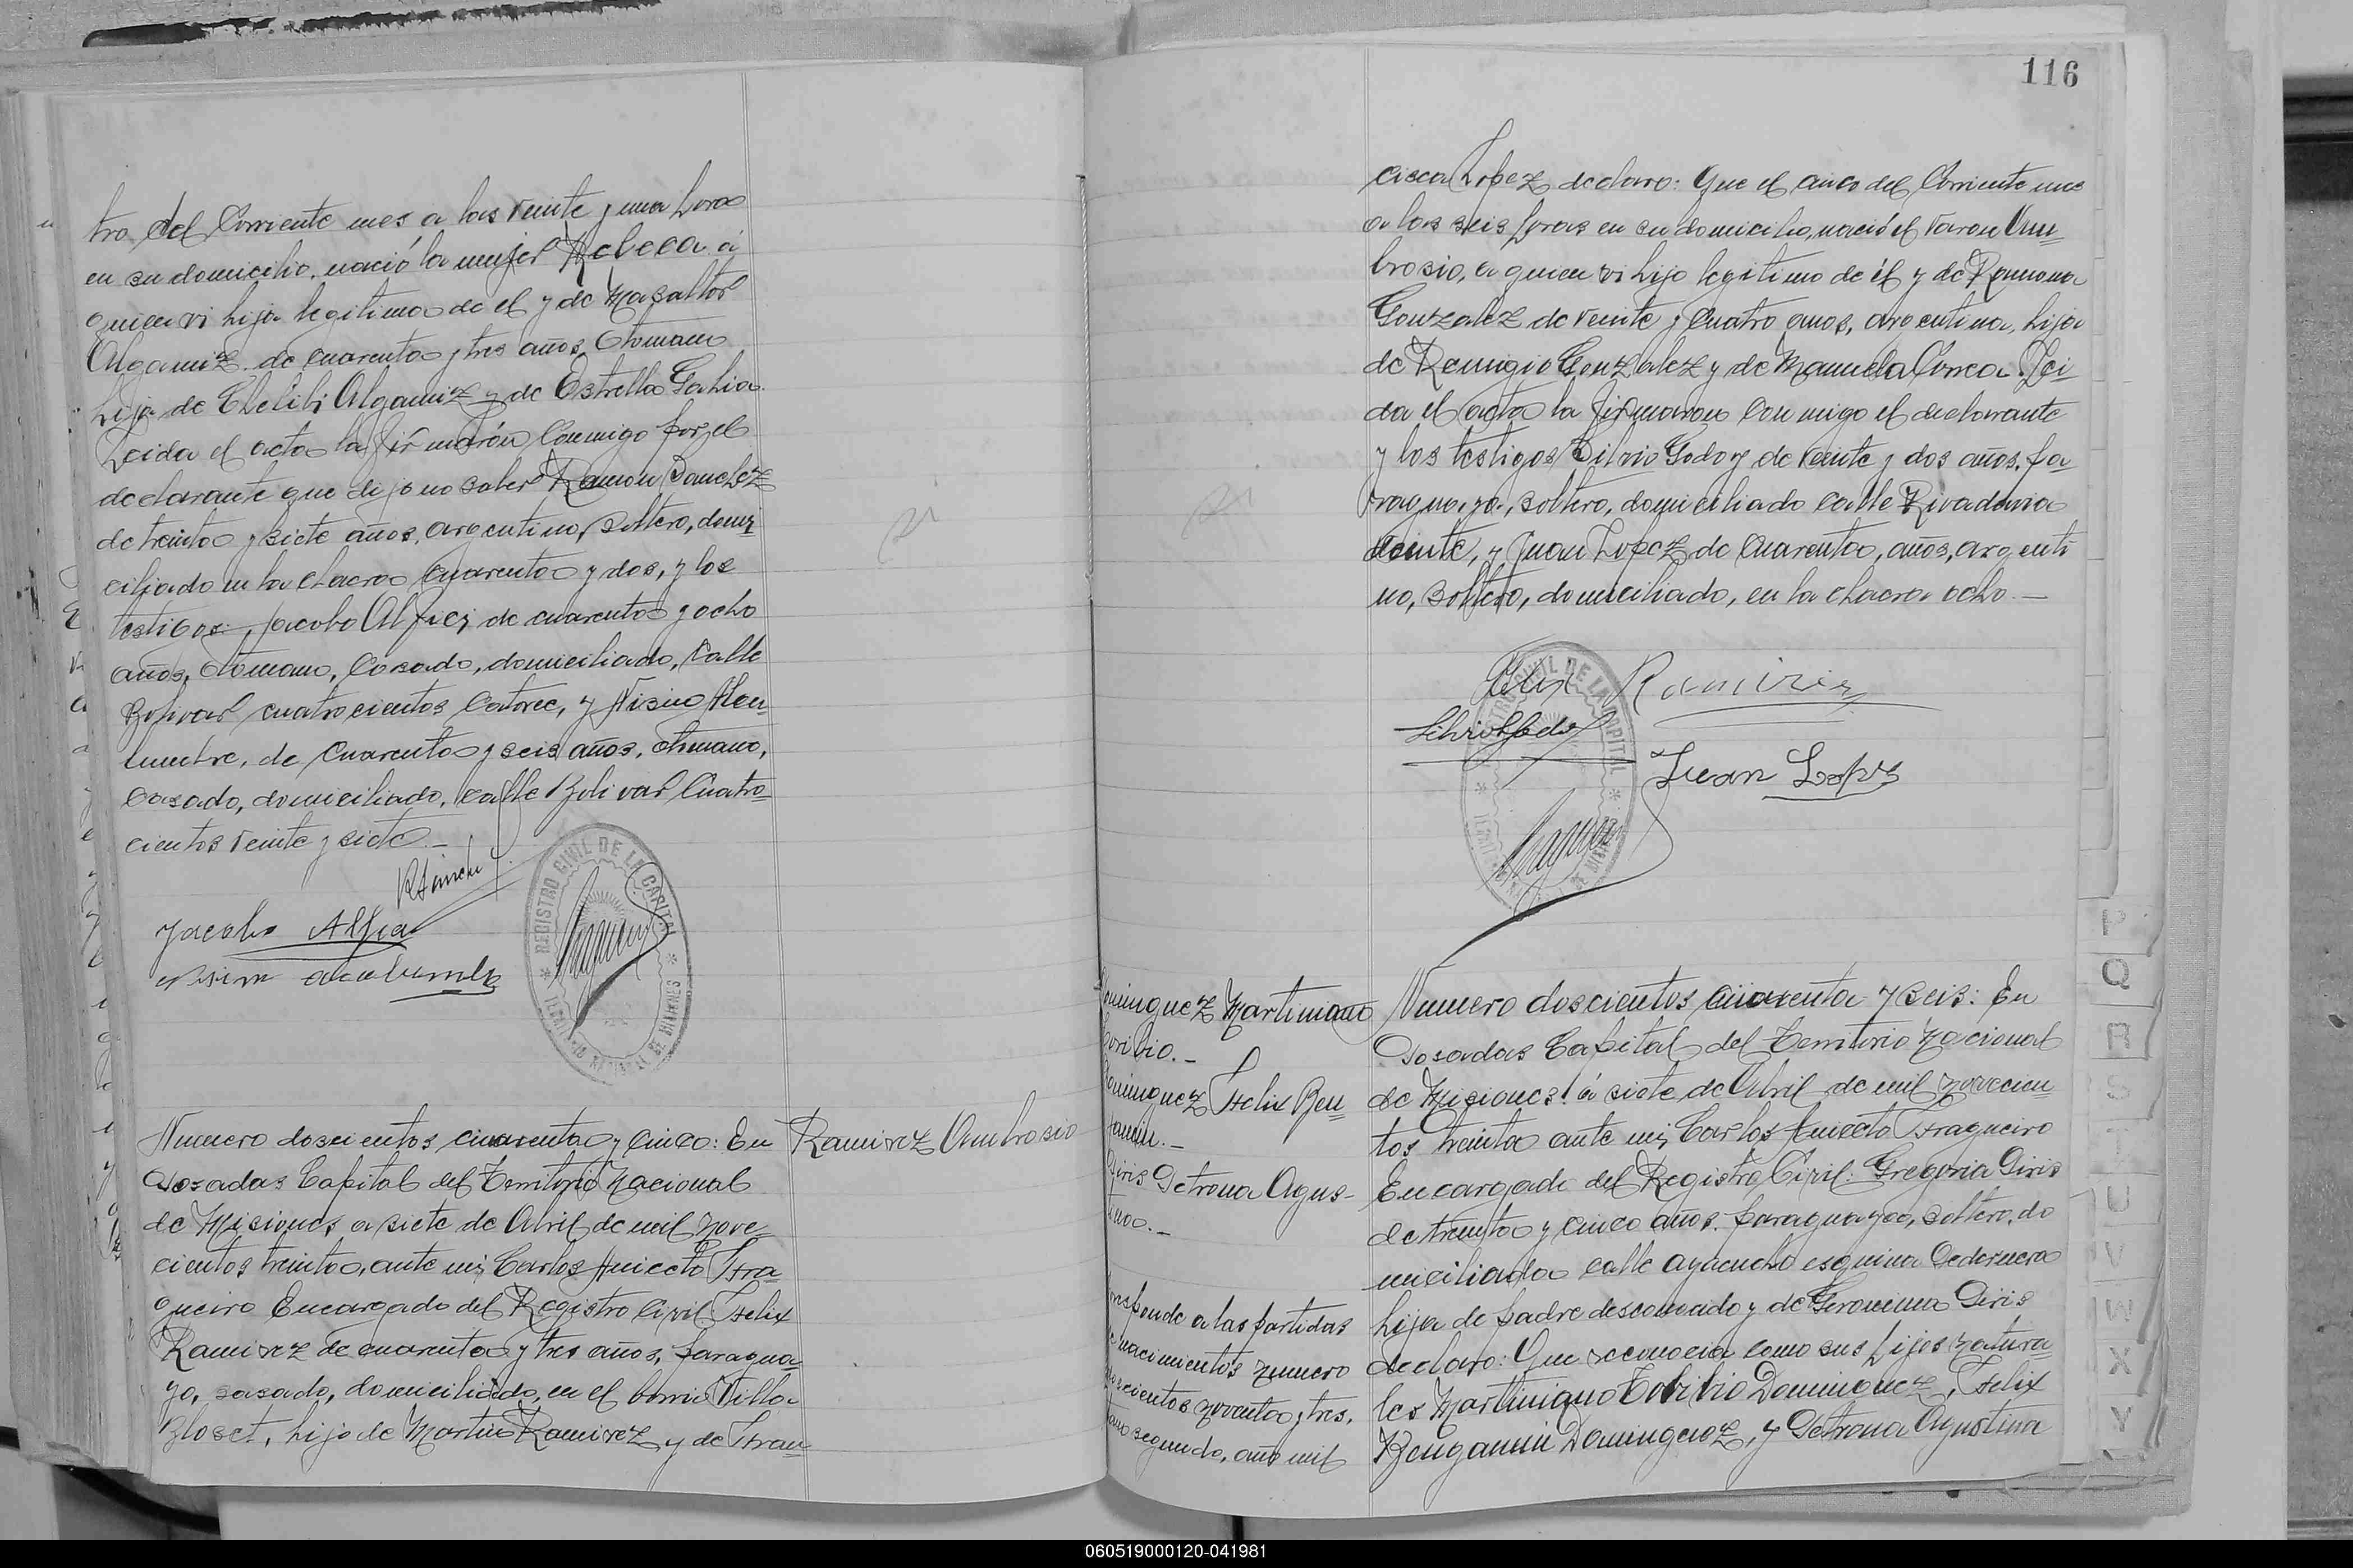 tro, del Corriente mes a las veinte y una horas
en su domicilio, nació la mujer Rebeca á
quien vi hija legitima de el y de Masaltof
Algamiz de cuarenta y tres años, Otomana
hija de Chelibi Algamiz y de Estrella Gahia.
Leida el acta la firmarón conmigo por el
declarante que dijo no saber Ramon Sanchez
de treinta y siete años, argentino, soltero, domi
ciliado en la chacra cuarenta y dos, y los
testigos, Jacobo Alfici de cuarenta y ocho
años, Otomano, Casado, domiciliado, Calle
Bolivar cuatrocientos catorce, y Nisino
de cuarenta y seis años, otomano,
casado, domiciliado, calle Bolivar Cuatro=
cientos veinte y siete.—
RSanchez
Jacobo Alfici
Nisim
REGISTRO CIVIL DE LA CAPITAL
DE MISIONES
Numero doscientos cuarenta y cinco: En
Posadas Capital del Territorio Nacional
de Misiones, a siete de Abril de mil nove=
cientos treinta, ante mi, Carlos Aniceto Fra=
gueiro Encargado del Registro Civil Felix
Ramirez de cuarenta y tres años, paragua=
yo, casado, domiciliado, en el barrio Villa
Bloset, hijo de Martin Ramirez y de Fran=
Ramirez Ambrosio
116
cisca Lopez declaro: Que el cinco del Corriente mes
a las seis horas en su domicilio, nació el varon Am=
brosio, a quien vi hijo legitimo de él y de Ramona
Gonzalez de veinte y cuatro años, argentina, hija
de Remigio Gonzalez y de Manuela Correa. Lei
da el acta la firmaron con migo el declarante
y los testigos Silvio Godoy de veinte y dos años, pa
raguayo, soltero, domiciliado calle Rivadavia
veinte, y Juan Lopez de cuarenta, años, argenti
no, soltero, domiciliado, en la chacra ocho.—
Felix Ramirez
Silvio Godoy
Juan Lopez
REGISTRO CIVIL DE LA CAPITAL
ominguez Martiniano
oribio.—
ominguez Felix Ben=
jamin.—
Piris Petrona Agus-
tina.—
responde a las partidas
nacimientos numero
doscientos noventa y tres,
tomo segundo, año mil
Numero doscientos cuarenta y seis: En
Posadas Capital del Territorio Nacional
de Misiones: á siete de Abril de mil novecien
tos treinta ante mi, Carlos Aniceto Fragueiro
Encargado del Registro Civil: Gregoria Piris
de treinta y cinco años, paraguaya, soltera, do
miciliada calle Ayacucho esquina Pedernera
hija de padre desconocido y de Geronima Piris
declaro: Que reconocia como sus hijos natura
les Martiniano Toribio Dominguez, Felix
Bengamin Dominguez, y Petrona Agustina
P
Q
R
S
T
U
V
W
X
Y
060519000120-041981